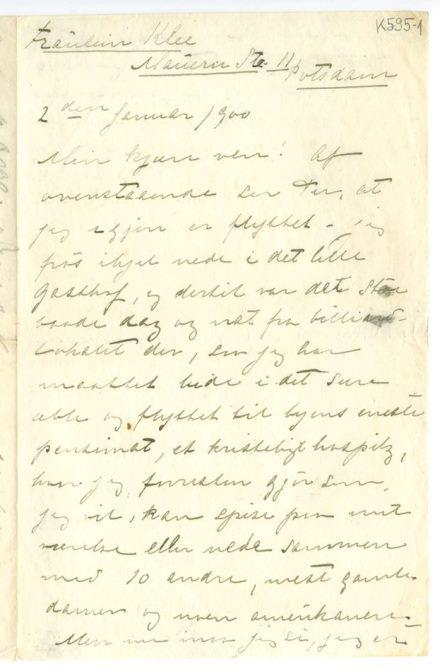 K595-1
Fräulein Klee
Mauern Str. 11 Potsdam
2 den Januar 1900
Min kjære ven! Af
ovenstaaende ser De, at
jeg igjen er flyttet. Jeg
frøs ihjel nede i det lille
Gasthof, og dertil var det støi
baade dag og nat fra billiard-
lokalet der, så jeg har
maattet bide i det sure
æble og flyttet til byens eneste
pensionat, et kristeligt hospitz,
hvor jeg forresten gjør som
jeg vil, kan spise paa mit
værelse eller nede sammen
med 10 andre, mest gamle
damer og noen amerikanere.
Men nu maa jeg si, jeg er